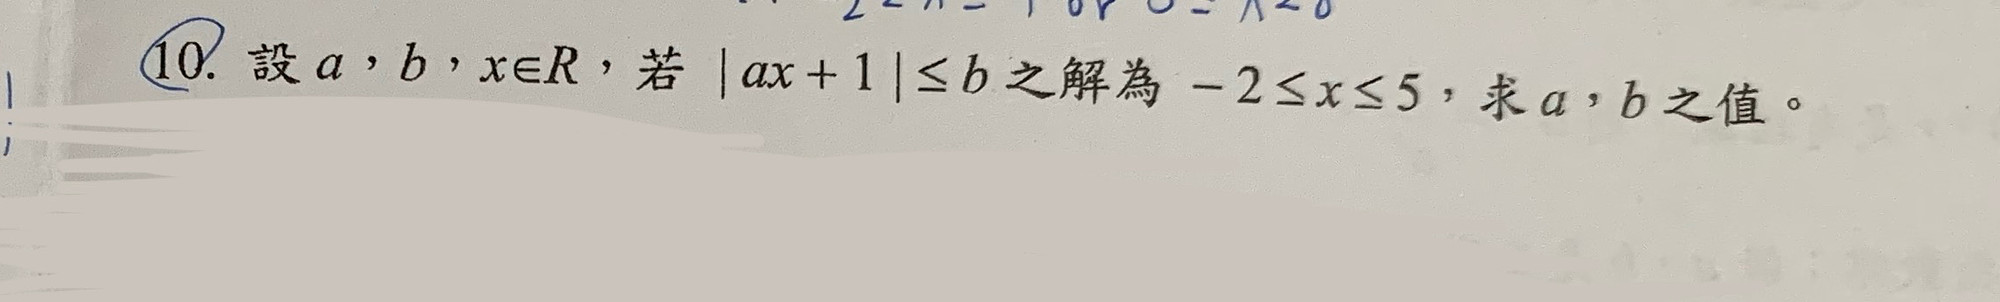 10. 設 a，b，x∈R，若 |ax+1|≤b 之解為 -2≤x≤5，求 a，b 之值。